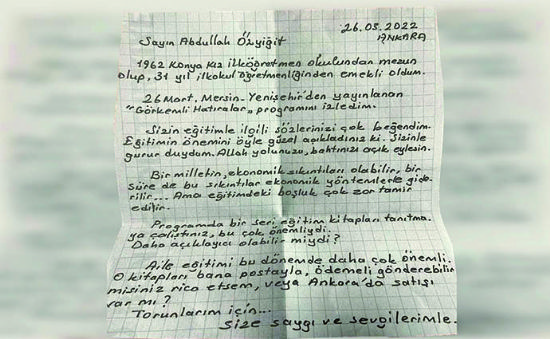 26.03.2022
ANKARA
Sayın Abdullah Özyiğit
1962 Konya Kız ilköğretmen okulundan mezun
olup, 31 yıl ilkokul öğretmenliğinden emekli oldum.
26 Mart, Mersin-Yenişehir'den yayınlanan
"Görkemli Hatıralar" programını izledim.
Sizin eğitimle ilgili sözlerinizi çok beğendim.
Eğitimin önemini öyle güzel açıkladınız ki. Sizinle
gurur duydum. Allah yolunuzu, bahtınızı açık eylesin.
Bir milletin, ekonomik sıkıntıları olabilir, bir
süre de bu sıkıntılar ekonomik yöntemlerle gide-
rilir... Ama eğitimdeki boşluk çok zor tamir
edilir.
Programda bir seri eğitim kitapları tanıtma-
ya çalıştınız, bu çok önemliydi.
Daha açıklayıcı olabilir miydi?
Aile eğitimi bu dönemde daha çok önemli.
O kitapları bana postayla, ödemeli gönderebilir
misiniz rica etsem, veya Ankara'da satışı
var mı?
Torunlarım için...
Size saygı ve sevgilerimle.